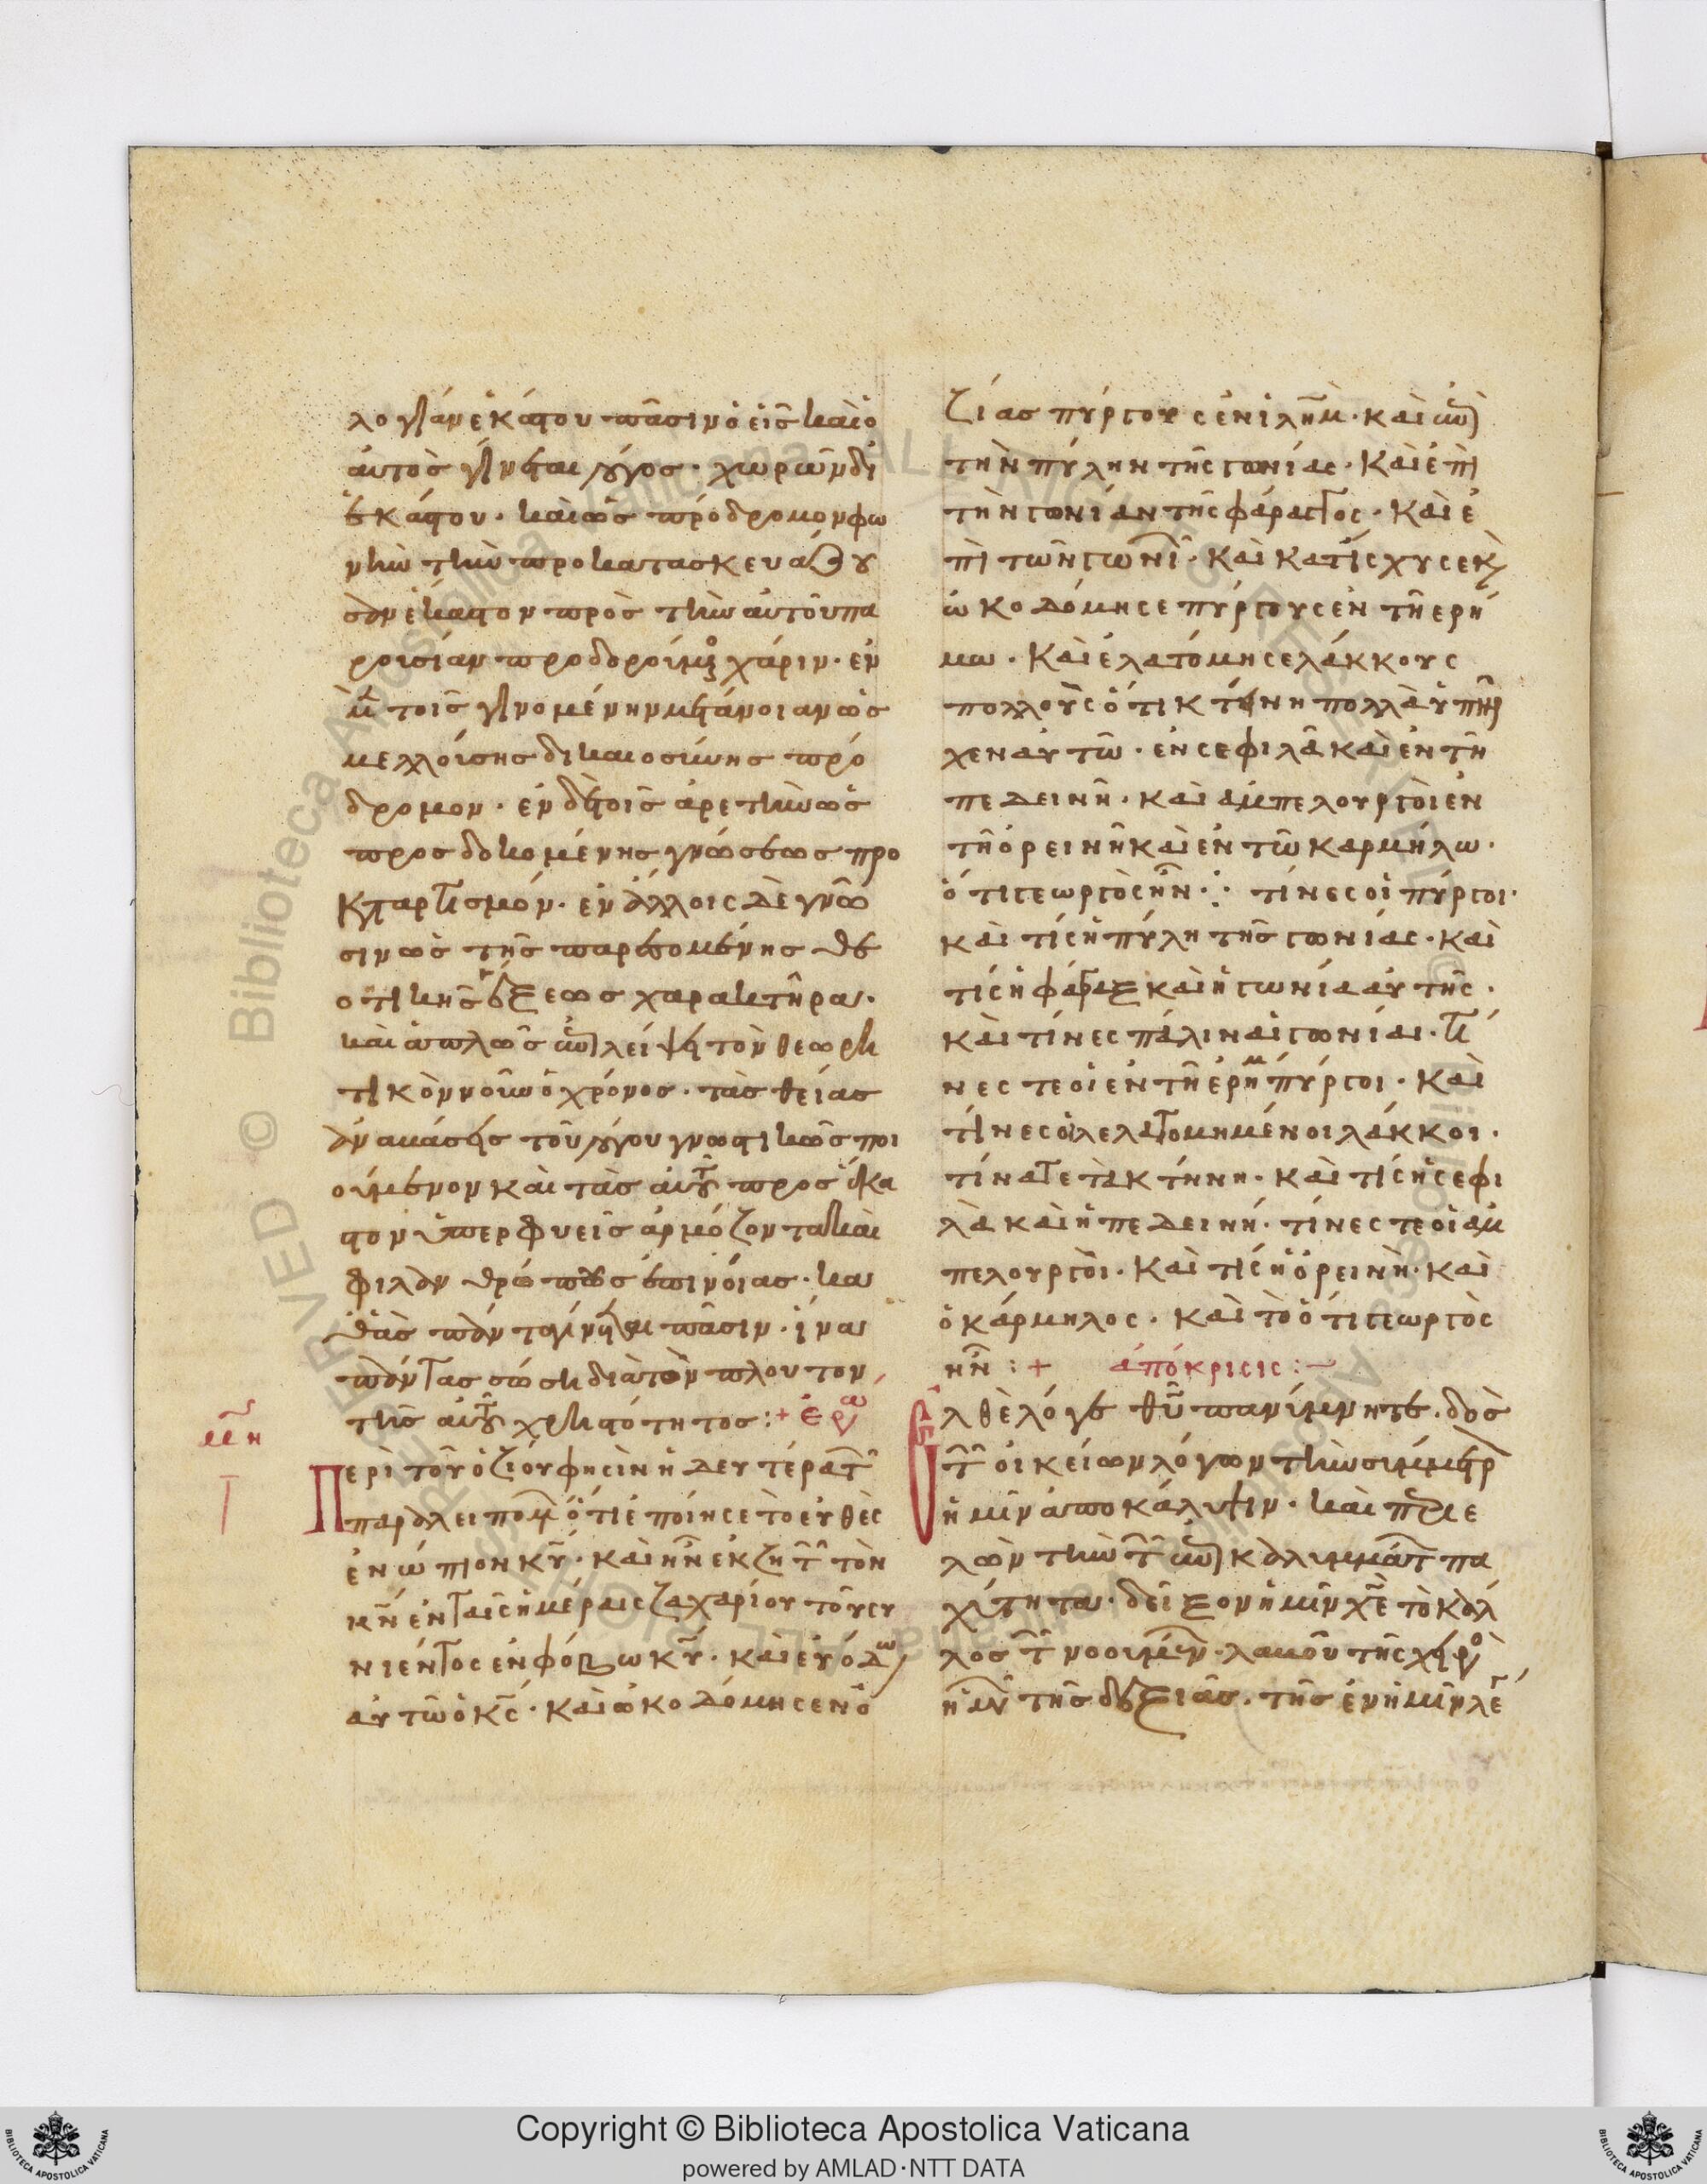 λογίαν ἑκάστου πᾶσιν ὁ εἷς καὶ ὁ
αὐτὸς γίνεται λόγος· χωρῶν δι
ἑκάστου· καὶ ὡς πρόδρομον φω
νὴν τὴν προκατασκευάζου
σαν ἕκαστον πρὸς τὴν αὐτοῦ πα
ρουσίαν προδιδοὺς χάριν· ἐν
μὲν τοῖς γινομένην μετάνοιαν ὡς
μελλούσης δικαιοσύνης πρό
δρομον· ἐν δὲ τοῖς ἀρετὴν ὡς
προσδοκωμένης γνώσεως προ
καταρτισμόν· ἐν ἄλλοις δὲ γνῶ
σιν ὡς τῆς παρεπομένης θε
ωτικῆς ἕξεως χαρακτῆρα·
καὶ ἁπλῶς ἐπιλείψει τὸν θεωρη
τικὸν νοῦν ὁ χρόνος· τὰς θείας
ἀναβάσεις τοῦ λόγου γνωστικῶς ποι
ούμενον καὶ τὰς αὐτοῦ πρὸς ἕκα
στον ὑπερφυεῖς ἁρμόζοντα καὶ
φιλανθρώπους ἐπινοίας· κα
θ' ἃς πάντα γίνεται πᾶσιν· ἵνα
πάντας σώσῃ διὰ τὸν πλοῦτον
τῆς αὐτοῦ χρηστότητος :+ ἐρω
μη
Περὶ τοῦ ὀζίου φησὶν ἡ δευτέρα τῶν
παραλειπομένων ὅτι ἐποίησε τὸ εὐθὲς
ἐνώπιον κυ· καὶ ἦν ἐκζητῶν τὸν
κν ἐν ταῖς ἡμέραις ζαχαρίου τοῦ συ
νιέντος ἐν φόβω κυ· καὶ εὐόδω
αὐτῶ ὁ κς· καὶ ὠκοδόμησεν ὀ
ζίας πύργους ἐν ιλημ· καὶ ἐπὶ
τὴν πύλην τῆς γωνίας· καὶ ἐπὶ
τὴν γωνίαν τῆς φάραγγος· καὶ ἐ
πὶ τῶν γωνιῶν· καὶ κατίσχυσε καὶ
ὠκοδόμησε πύργους ἐν τῆ ἐρή
μω· καὶ ἐλατόμησε λάκκους
πολλοὺς ὅτι κτήνη πολλὰ ὑπῆρ
χεν αὐτῶ· ἐν σεφιλᾶ καὶ ἐν τῆ
πεδεινῆ· καὶ ἀμπελουργοὶ ἐν
τῆ ὀρεινῆ καὶ ἐν τῶ καρμήλω·
ὅτι γεωργὸς ἦν ⁘ τίνες οἱ πύργοι·
καὶ τίς ἡ πύλη τῆς γωνίας· καὶ
τίς ἡ φάραγξ καὶ ἡ γωνία αὐτῆς·
καὶ τίνες πάλιν αἱ γωνίαι· τί
νες τε οἱ ἐν τῆ ἐρήμω πύργοι· καὶ
τίνες οἱ λελατομημένοι λάκκοι·
τίνα τε τὰ κτήνη· καὶ τίς ἡ σεφι
λὰ καὶ ἡ πεδεινή· τίνες τε οἱ ἀμ
πελουργοὶ· καὶ τίς ἡ ὀρεινὴ· καὶ
ὁ κάρμηλος· καὶ τὸ ὅτι γεωργὸς
ἦν :+ ἀπόκρισις :~
Ἐλθὲ λόγε θυ πανύμνητε· δὸς
τῶν οἰκείων λόγων τὴν σύμμετρον
ἡμῖν ἀποκάλυψιν· καὶ περιε
λὼν τὴν τῶν ἐπικαλυμμάτων πα
χύτητα· δεῖξον ἡμῖν χε τὸ κάλ
λος τῶν νοουμένων· λαβοῦ τῆς χειρὸς
ἡμῶν τῆς δεξιᾶς· τῆς ἐν ἡμῖν λέγω